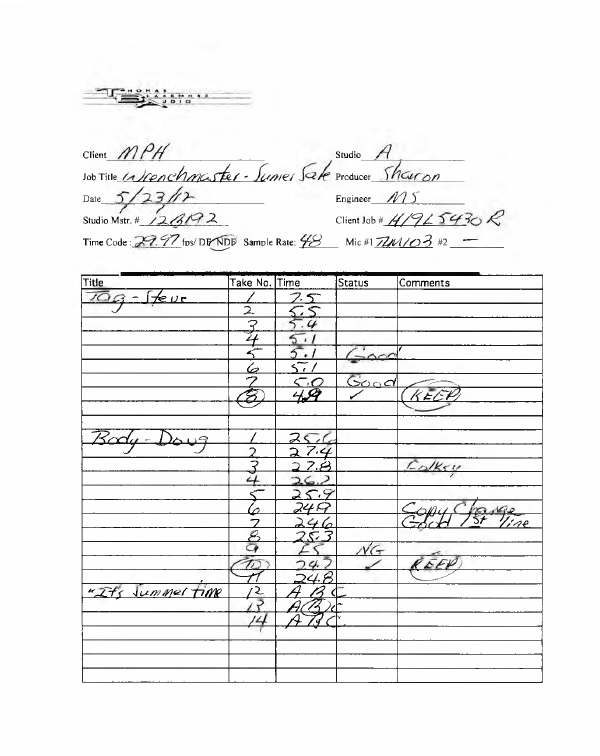 THOMAS
BLAKEMORE
AUDIO
Client MPH Studio A
Job Title Wrenchmaster - Sumer Sale Producer Sharon
Date 5/23/12 Engineer MS
Studio Mstr. # Client Job # A19L5430R
Time Code: 29.97 fps/ DF/NDF Sample Rate: 48 Mic #1 TLM103 #2 —
Title Take No. Time Status Comments
Tag - Steve 1 7.5
2 5.5
3 5.4
4 5.1
5 5.1 Good
6 5.1
7 5.0 Good
8 4.9 ✓ KEEP
Body - Doug 1 25.6
2 27.4
3 27.8 Folksy
4 26.2
5 25.9
6 24.9 Copy Change
7 24.6 Good 1st line
8 25.3
9 FS NG
10 24.7 ✓ KEEP
11 24.8
"It's Summer time 12 A B C
13 A B C
14 A B C